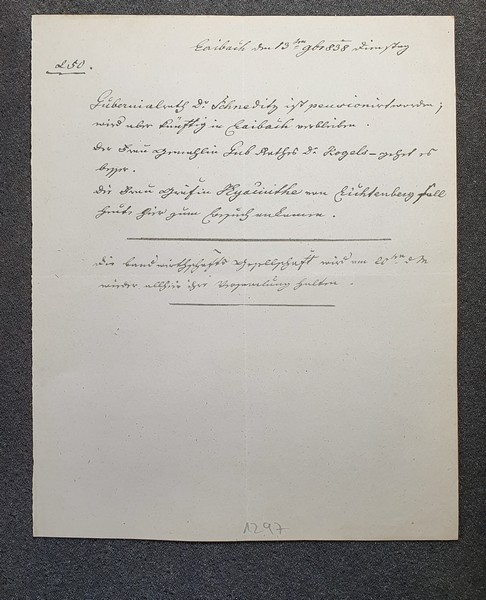 Laibach den 13ten 9b 1838 Dienstag
250.
Gubernialrath Dr Schneditz ist pensionirt worden;
wird aber künftig in Laibach verbleiben.
der Frau Gemahlin Gub Rathes Dr. Kogels - gehet es
besser.
die Frau Gräfin Hyacinthe von Lichtenberg soll
heute hier zum Besuch ankomen.
die Landwirthschafts Gesellschaft wird am 20ten d M
wieder allhier ihre Versamlung halten.
1297